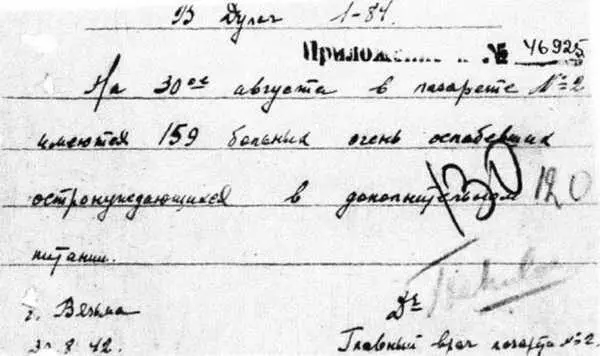 В Дулаг 1-84.
Приложение к № 46925
На 30ое августа в лазарете №2
имеются 159 больных очень ослабевших
остронуждающихся в дополнительном
130 120
питании.
г. Вязьма Dr
30.8.42. Главный врач лазарета №2.